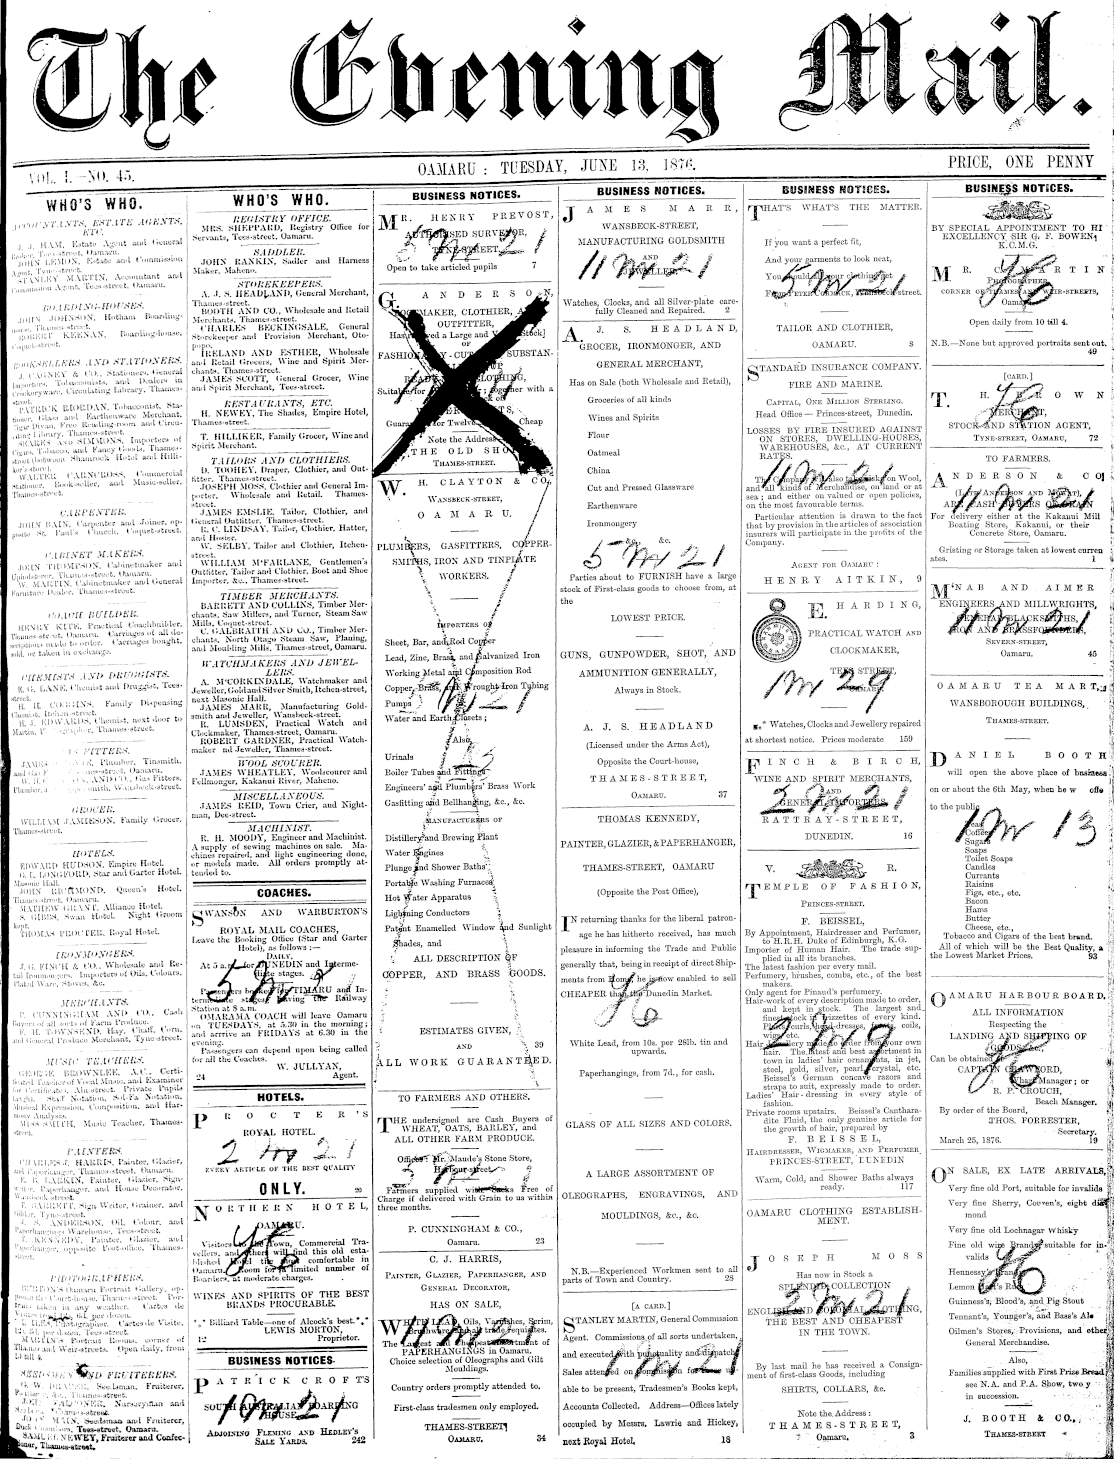 The Evening Mail.
VOL. I.—NO. 45.
OAMARU : TUESDAY, JUNE 13, 1876.
PRICE, ONE PENNY
WHO'S WHO.
ACCOUNTANTS, ESTATE AGENTS,
ETC.
J. J. HAM, Estate Agent and General
JOHN LEMON, Estate and Commission
Agent, Tyne-street.
STANLEY MARTIN, Accountant and
Commission Agent, Tees-street, Oamaru.
BOARDING-HOUSES.
JOHN JOHNSON, Hotham Boarding-
house, Thames-street.
ROBERT KEENAN, Boarding-house,
Coquet-street.
BOOKSELLERS AND STATIONERS.
J. CAGNEY & CO., Stationers, General
Importers, Tobacconists, and Dealers in
Crockeryware, Circulating Library, Thames-
street.
PATRICK RIORDAN, Tobacconist, Sta-
tioner, Glass and Earthenware Merchant,
SEARS AND SIMMONS, Importers of
Cigars, Tobacco, and Fancy Goods, Thames-
street (between Shamrock Hotel and Hilli-
ker's store).
WALTER CAIRNCROSS, Commercial
Stationer, Book-seller, and Music-seller,
Thames-street.
CARPENTER.
JOHN BAIN, Carpenter and Joiner, op-
posite St. Paul's Church, Coquet-street.
CABINET MAKERS.
JOHN THOMPSON, Cabinetmaker and
Upholsterer, Thames-street, Oamaru.
W. MARTIN, Cabinetmaker and General
Furniture Dealer, Thames-street.
COACH BUILDER.
HENRY KITE, Practical Coachbuilder,
Thames-street, Oamaru. Carriages of all de-
scriptions made to order. Carriages bought,
sold, or taken in exchange.
CHEMISTS AND DRUGGISTS.
E. G. LANE, Chemist and Druggist, Tees-
street.
H. H. COGGINS, Family Dispensing
Chemist, Itchen-street.
H. J. EDWARDS, Chemist, next door to
GAS FITTERS.
Plumber, Tinsmith,
GROCER.
WILLIAM JAMIESON, Family Grocer,
Thames-street.
HOTELS.
EDWARD HUDSON, Empire Hotel.
G. L. LONGFORD, Star and Garter Hotel.
Masonic Hall.
JOHN RICHMOND, Queen's Hotel,
Thames-street, Oamaru.
MATHEW GRANT, Alliance Hotel.
S. GIBBS, Swan Hotel. Night Groom
kept.
THOMAS PROCTER, Royal Hotel.
IRONMONGERS.
J. G. FINCH & CO., Wholesale and Re-
tail Ironmongers. Importers of Oils, Colours,
Plated Ware, Stoves, &c.
MERCHANTS.
P. CUNNINGHAM AND CO., Cash
Buyers of all sorts of Farm Produce.
H. H. TOWNSEND, Hay, Chaff, Corn,
and General Produce Merchant, Tyne-street.
MUSIC TEACHERS.
GEORGE BROWNLEE, A.C., Certi-
ficated Teacher of Vocal Music, and Examiner
MISS SMITH, Music Teacher, Thames-
street.
PAINTERS.
CHARLES J. HARRIS, Painter, Glazier,
and Paperhanger, Thames-street, Oamaru.
E. B. LARKIN, Painter, Glazier, Sign-
writer, Paperhanger, and House Decorator,
T. BARRETT, Sign Writer, Grainer, and
J. S. ANDERSON, Oil, Colour, and
Paperhangings Warehouse, Tees-street.
T. KENNEDY, Painter, Glazier, and
Paperhanger, opposite Post-office, Thames-
street.
PHOTOGRAPHERS.
BURTON'S Oamaru Portrait Gallery, op-
Thames and Weir-streets. Open daily, from
SEEDSMEN AND FRUITERERS.
Seedsman, Fruiterer,
JOHN MAIN, Seedsman and Fruiterer,
Tees-street, Oamaru.
SAMUEL NEWEY, Fruiterer and Confec-
tioner, Thames-street.
WHO'S WHO.
REGISTRY OFFICE.
MRS. SHEPPARD, Registry Office for
Servants, Tees-street, Oamaru.
SADDLER.
JOHN RANKIN, Sadler and Harness
Maker, Maheno.
STOREKEEPERS.
A. J. S. HEADLAND, General Merchant,
Thames-street.
BOOTH AND CO., Wholesale and Retail
Merchants, Thames-street.
CHARLES BECKINGSALE, General
Storekeeper and Provision Merchant, Oto-
popo.
IRELAND AND ESTHER, Wholesale
and Retail Grocers, Wine and Spirit Mer-
chants, Thames-street.
JAMES SCOTT, General Grocer, Wine
and Spirit Merchant, Tees-street.
RESTAURANTS, ETC.
H. NEWEY, The Shades, Empire Hotel,
Thames-street.
T. HILLIKER, Family Grocer, Wine and
Spirit Merchant.
TAILORS AND CLOTHIERS.
D. TOOHEY, Draper, Clothier, and Out-
fitter, Thames-street.
JOSEPH MOSS, Clothier and General Im-
porter. Wholesale and Retail. Thames-
street.
JAMES EMSLIE, Tailor, Clothier, and
General Outfitter, Thames-street.
R. C. LINDSAY, Tailor, Clothier, Hatter,
and Hosier.
W. SELBY, Tailor and Clothier, Itchen-
street.
WILLIAM M'FARLANE, Gentlemen's
Outfitter, Tailor and Clothier, Boot and Shoe
Importer, &c., Thames-street.
TIMBER MERCHANTS.
BARRETT AND COLLINS, Timber Mer-
chants, Saw Millers, and Turner, Steam Saw
Mills, Coquet-street.
C. GALBRAITH AND CO., Timber Mer-
chants, North Otago Steam Saw, Planing,
and Moulding Mills, Thames-street, Oamaru.
WATCHMAKERS AND JEWEL-
LERS.
A. M'CORKINDALE, Watchmaker and
Jeweller, Gold and Silver Smith, Itchen-street,
next Masonic Hall.
JAMES MARR, Manufacturing Gold-
smith and Jeweller, Wansbeck-street.
R. LUMSDEN, Practical Watch and
Clockmaker, Thames-street, Oamaru.
ROBERT GARDNER, Practical Watch-
maker and Jeweller, Thames-street.
WOOL SCOURER.
JAMES WHEATLEY, Woolscourer and
Fellmonger, Kakanui River, Maheno.
MISCELLANEOUS.
JAMES REID, Town Crier, and Night-
man, Dee-street.
MACHINIST.
R. H. MOODY, Engineer and Machinist.
A supply of sewing machines on sale. Ma-
chines repaired, and light engineering done,
or models made. All orders promptly at-
tended to.
COACHES.
SWANSON AND WARBURTON'S
ROYAL MAIL COACHES,
Leave the Booking Office (Star and Garter
Hotel), as follows :—
DAILY,
At 5 a.m. for DUNEDIN and Interme-
diate stages.
Passengers booked for TIMARU and In-
termediate stages, leaving the Railway
Station at 8 a.m.
OMARAMA COACH will leave Oamaru
on TUESDAYS, at 5.30 in the morning;
and arrive on FRIDAYS at 6.30 in the
evening.
Passengers can depend upon being called
for all the Coaches.
W. JULLYAN,
24 Agent.
HOTELS.
PROCTER'S
ROYAL HOTEL.
2 m 21
EVERY ARTICLE OF THE BEST QUALITY
ONLY. 20
NORTHERN HOTEL,
OAMARU.
Visitors to the Town, Commercial Tra-
vellers, and others will find this old esta-
blished Hotel the most comfortable in
Oamaru. Room for a limited number of
Boarders, at moderate charges.
WINES AND SPIRITS OF THE BEST
BRANDS PROCURABLE.
*** Billiard Table—one of Alcock's best.***
LEWIS MORTON,
12 Proprietor.
BUSINESS NOTICES.
PATRICK CROFT'S
SOUTH AUSTRALIAN BOARDING
HOUSE,
ADJOINING FLEMING AND HEDLEY'S
SALE YARDS. 242
BUSINESS NOTICES.
MR. HENRY PREVOST,
AUTHORISED SURVEYOR,
TYNE-STREET.
5 m 21
Open to take articled pupils 7
G. ANDERSON,
CLOTHIER,
OUTFITTER,
OR
Note the Address
THE OLD SHOP
THAMES-STREET.
W. H. CLAYTON & CO.,
WANSBECK-STREET,
OAMARU.
PLUMBERS, GASFITTERS, COPPER-
SMITHS, IRON AND TINPLATE
WORKERS.
IMPORTERS OF
Sheet, Bar, and Rod Copper
Lead, Zinc, Brass, and Galvanized Iron
Working Metal and Composition Rod
Copper, Brass, and Wrought Iron Tubing
Pumps
Water and Earth Closets ;
Also,
Urinals
Boiler Tubes and Fittings
Engineers' and Plumbers' Brass Work
Gasfitting and Bellhanging, &c., &c.
MANUFACTURERS OF
Distillery and Brewing Plant
Water Engines
Plunge and Shower Baths
Portable Washing Furnaces
Hot Water Apparatus
Lightning Conductors
Patent Enamelled Window and Sunlight
Shades, and
ALL DESCRIPTION OF
COPPER, AND BRASS GOODS.
ESTIMATES GIVEN,
AND 39
ALL WORK GUARANTEED.
TO FARMERS AND OTHERS.
THE undersigned are Cash Buyers of
WHEAT, OATS, BARLEY, and
ALL OTHER FARM PRODUCE.
Offices : Mr. Maude's Stone Store,
Harbour-street.
Farmers supplied with Sacks Free of
Charge if delivered with Grain to us within
three months.
P. CUNNINGHAM & CO.,
Oamaru. 23
C. J. HARRIS,
PAINTER, GLAZIER, PAPERHANGER, AND
GENERAL DECORATOR,
HAS ON SALE,
WHITE Lead, Oils, Varnishes, Scrim,
PAPERHANGINGS in Oamaru.
Choice selection of Oleographs and Gilt
Mouldings.
Country orders promptly attended to.
First-class tradesmen only employed.
THAMES-STREET,
OAMARU. 34
BUSINESS NOTICES.
JAMES MARR,
WANSBECK-STREET,
MANUFACTURING GOLDSMITH
AND
JEWELLER.
11 m 21
Watches, Clocks, and all Silver-plate care-
fully Cleaned and Repaired. 2
A. J. S. HEADLAND,
GROCER, IRONMONGER, AND
GENERAL MERCHANT,
Has on Sale (both Wholesale and Retail),
Groceries of all kinds
Wines and Spirits
Flour
Oatmeal
China
Cut and Pressed Glassware
Earthenware
Ironmongery
&c. &c.
5 m 21
Parties about to FURNISH have a large
stock of First-class goods to choose from, at
the
LOWEST PRICE.
GUNS, GUNPOWDER, SHOT, AND
AMMUNITION GENERALLY,
Always in Stock.
A. J. S. HEADLAND
(Licensed under the Arms Act),
Opposite the Court-house,
THAMES-STREET,
OAMARU. 37
THOMAS KENNEDY,
PAINTER, GLAZIER, & PAPERHANGER,
THAMES-STREET, OAMARU
(Opposite the Post Office),
IN returning thanks for the liberal patron-
age he has hitherto received, has much
pleasure in informing the Trade and Public
generally that, being in receipt of direct Ship-
ments from Home, he is now enabled to sell
CHEAPER than the Dunedin Market.
White Lead, from 10s. per 28lb. tin and
upwards.
Paperhangings, from 7d., for cash.
GLASS OF ALL SIZES AND COLORS.
A LARGE ASSORTMENT OF
OLEOGRAPHS, ENGRAVINGS, AND
MOULDINGS, &c., &c.
N.B.—Experienced Workmen sent to all
parts of Town and Country. 28
[A CARD.]
STANLEY MARTIN, General Commission
Agent. Commissions of all sorts undertaken,
and executed with punctuality and dispatch
Sales attended on commission for
able to be present, Tradesmen's Books kept,
Accounts Collected. Address—Offices lately
occupied by Messrs. Lawrie and Hickey,
next Royal Hotel. 18
BUSINESS NOTICES.
THAT'S WHAT'S THE MATTER.
If you want a perfect fit,
And your garments to look neat,
You should all your clothing get
From PETER CORMICK, Wansbeck-street.
5 m 21
TAILOR AND CLOTHIER,
OAMARU. 8
STANDARD INSURANCE COMPANY.
FIRE AND MARINE.
CAPITAL, ONE MILLION STERLING.
Head Office — Princes-street, Dunedin.
LOSSES BY FIRE INSURED AGAINST
ON STORES, DWELLING-HOUSES,
WAREHOUSES, &c., AT CURRENT
RATES.
The Company also take risk on Wool,
and all kinds of Merchandise, on land or at
sea ; and either on valued or open policies,
on the most favourable terms.
Particular attention is drawn to the fact
that by provision in the articles of association
insurers will participate in the profits of the
Company.
AGENT FOR OAMARU :
HENRY AITKIN, 9
E. HARDING,
PRACTICAL WATCH AND
CLOCKMAKER,
TEES STREET,
OAMARU.
1 m 29
*** Watches, Clocks and Jewellery repaired
at shortest notice. Prices moderate 159
FINCH & BIRCH,
WINE AND SPIRIT MERCHANTS,
AND
GENERAL IMPORTERS,
2 m 21
RATTRAY-STREET,
DUNEDIN. 16
V. R.
TEMPLE OF FASHION,
PRINCES-STREET.
F. BEISSEL,
By Appointment, Hairdresser and Perfumer,
to H.R.H. Duke of Edinburgh, K.G.
Importer of Human Hair. The trade sup-
plied in all its branches.
The latest fashion per every mail.
Perfumery, brushes, combs, etc., of the best
makers.
Only agent for Pinaud's perfumery.
Hair-work of every description made to order,
and kept in stock. The largest and
finest stock in frizzettes of every kind.
Plaits, curls, head-dresses, coils,
wigs, etc.
Hair jewellery made to order from your own
hair. The latest and best assortment in
town in ladies' hair ornaments, in jet,
steel, gold, silver, pearl, crystal, etc.
Beissel's German concave razors and
straps to suit, expressly made to order.
Ladies' Hair-dressing in every style of
fashion.
Private rooms upstairs. Beissel's Canthara-
dite Fluid, the only genuine article for
the growth of hair, prepared by
F. BEISSEL,
HAIRDRESSER, WIGMAKER, AND PERFUMER
PRINCES-STREET, DUNEDIN
Warm, Cold, and Shower Baths always
ready. 117
OAMARU CLOTHING ESTABLISH-
MENT.
JOSEPH MOSS
Has now in Stock a
SPLENDID COLLECTION
OF
ENGLISH AND COLONIAL CLOTHING,
THE BEST AND CHEAPEST
IN THE TOWN.
By last mail he has received a Consign-
ment of first-class Goods, including
SHIRTS, COLLARS, &c.
Note the Address :
THAMES-STREET,
Oamaru. 3
BUSINESS NOTICES.
BY SPECIAL APPOINTMENT TO HI
EXCELLENCY SIR G. F. BOWEN,
K.C.M.G.
MR. C. MARTIN
PHOTOGRAPHER,
CORNER OF THAMES AND WEIR-STREETS,
Oamaru.
Open daily from 10 till 4.
N.B.—None but approved portraits sent out.
49
[CARD.]
T. H. BROWN
MERCHANT,
STOCK AND STATION AGENT,
TYNE-STREET, OAMARU, 72
TO FARMERS.
ANDERSON & CO
(Late Anderson and Mowat),
ARE CASH BUYERS OF GRAIN
For delivery either at the Kakanui Mill
Boating Store, Kakanui, or their
Concrete Store, Oamaru.
Gristing or Storage taken at lowest curren
rates. 1
M'NAB AND AIMER
ENGINEERS AND MILLWRIGHTS,
GENERAL BLACKSMITHS,
IRON AND BRASSFOUNDERS,
11 m 21
SEVERN-STREET,
Oamaru. 45
OAMARU TEA MART,
WANSBOROUGH BUILDINGS,
THAMES-STREET.
DANIEL BOOTH
will open the above place of business
on or about the 6th May, when he w offe
to the public
1 m 13
Teas
Coffee
Sugars
Soaps
Toilet Soaps
Candles
Currants
Raisins
Figs, etc., etc.
Bacon
Hams
Butter
Cheese, etc.,
Tobacco and Cigars of the best brand.
All of which will be the Best Quality, a
the Lowest Market Prices. 93
OAMARU HARBOUR BOARD.
ALL INFORMATION
Respecting the
LANDING AND SHIPPING OF
GOODS, &c.,
Can be obtained
CAPTAIN CRAWFORD,
Wharf Manager ; or
R. P. CROUCH,
Beach Manager.
By order of the Board,
THOS. FORRESTER,
Secretary.
March 25, 1876. 19
ON SALE, EX LATE ARRIVALS,
Very fine old Port, suitable for invalids
Very fine Sherry, Couven's, eight dia
mond
Very fine old Lochnagar Whisky
Fine old wine Brandy, suitable for in-
valids
Hennessy's Brandy
Lemon Hart's Rum
Guinness's, Blood's, and Pig Stout
Tennant's, Younger's, and Bass's Ale
Oilmen's Stores, Provisions, and other
General Merchandise.
Also,
Families supplied with First Prize Bread
see N.A. and P.A. Show, two y
in succession.
J. BOOTH & CO.,
THAMES-STREET